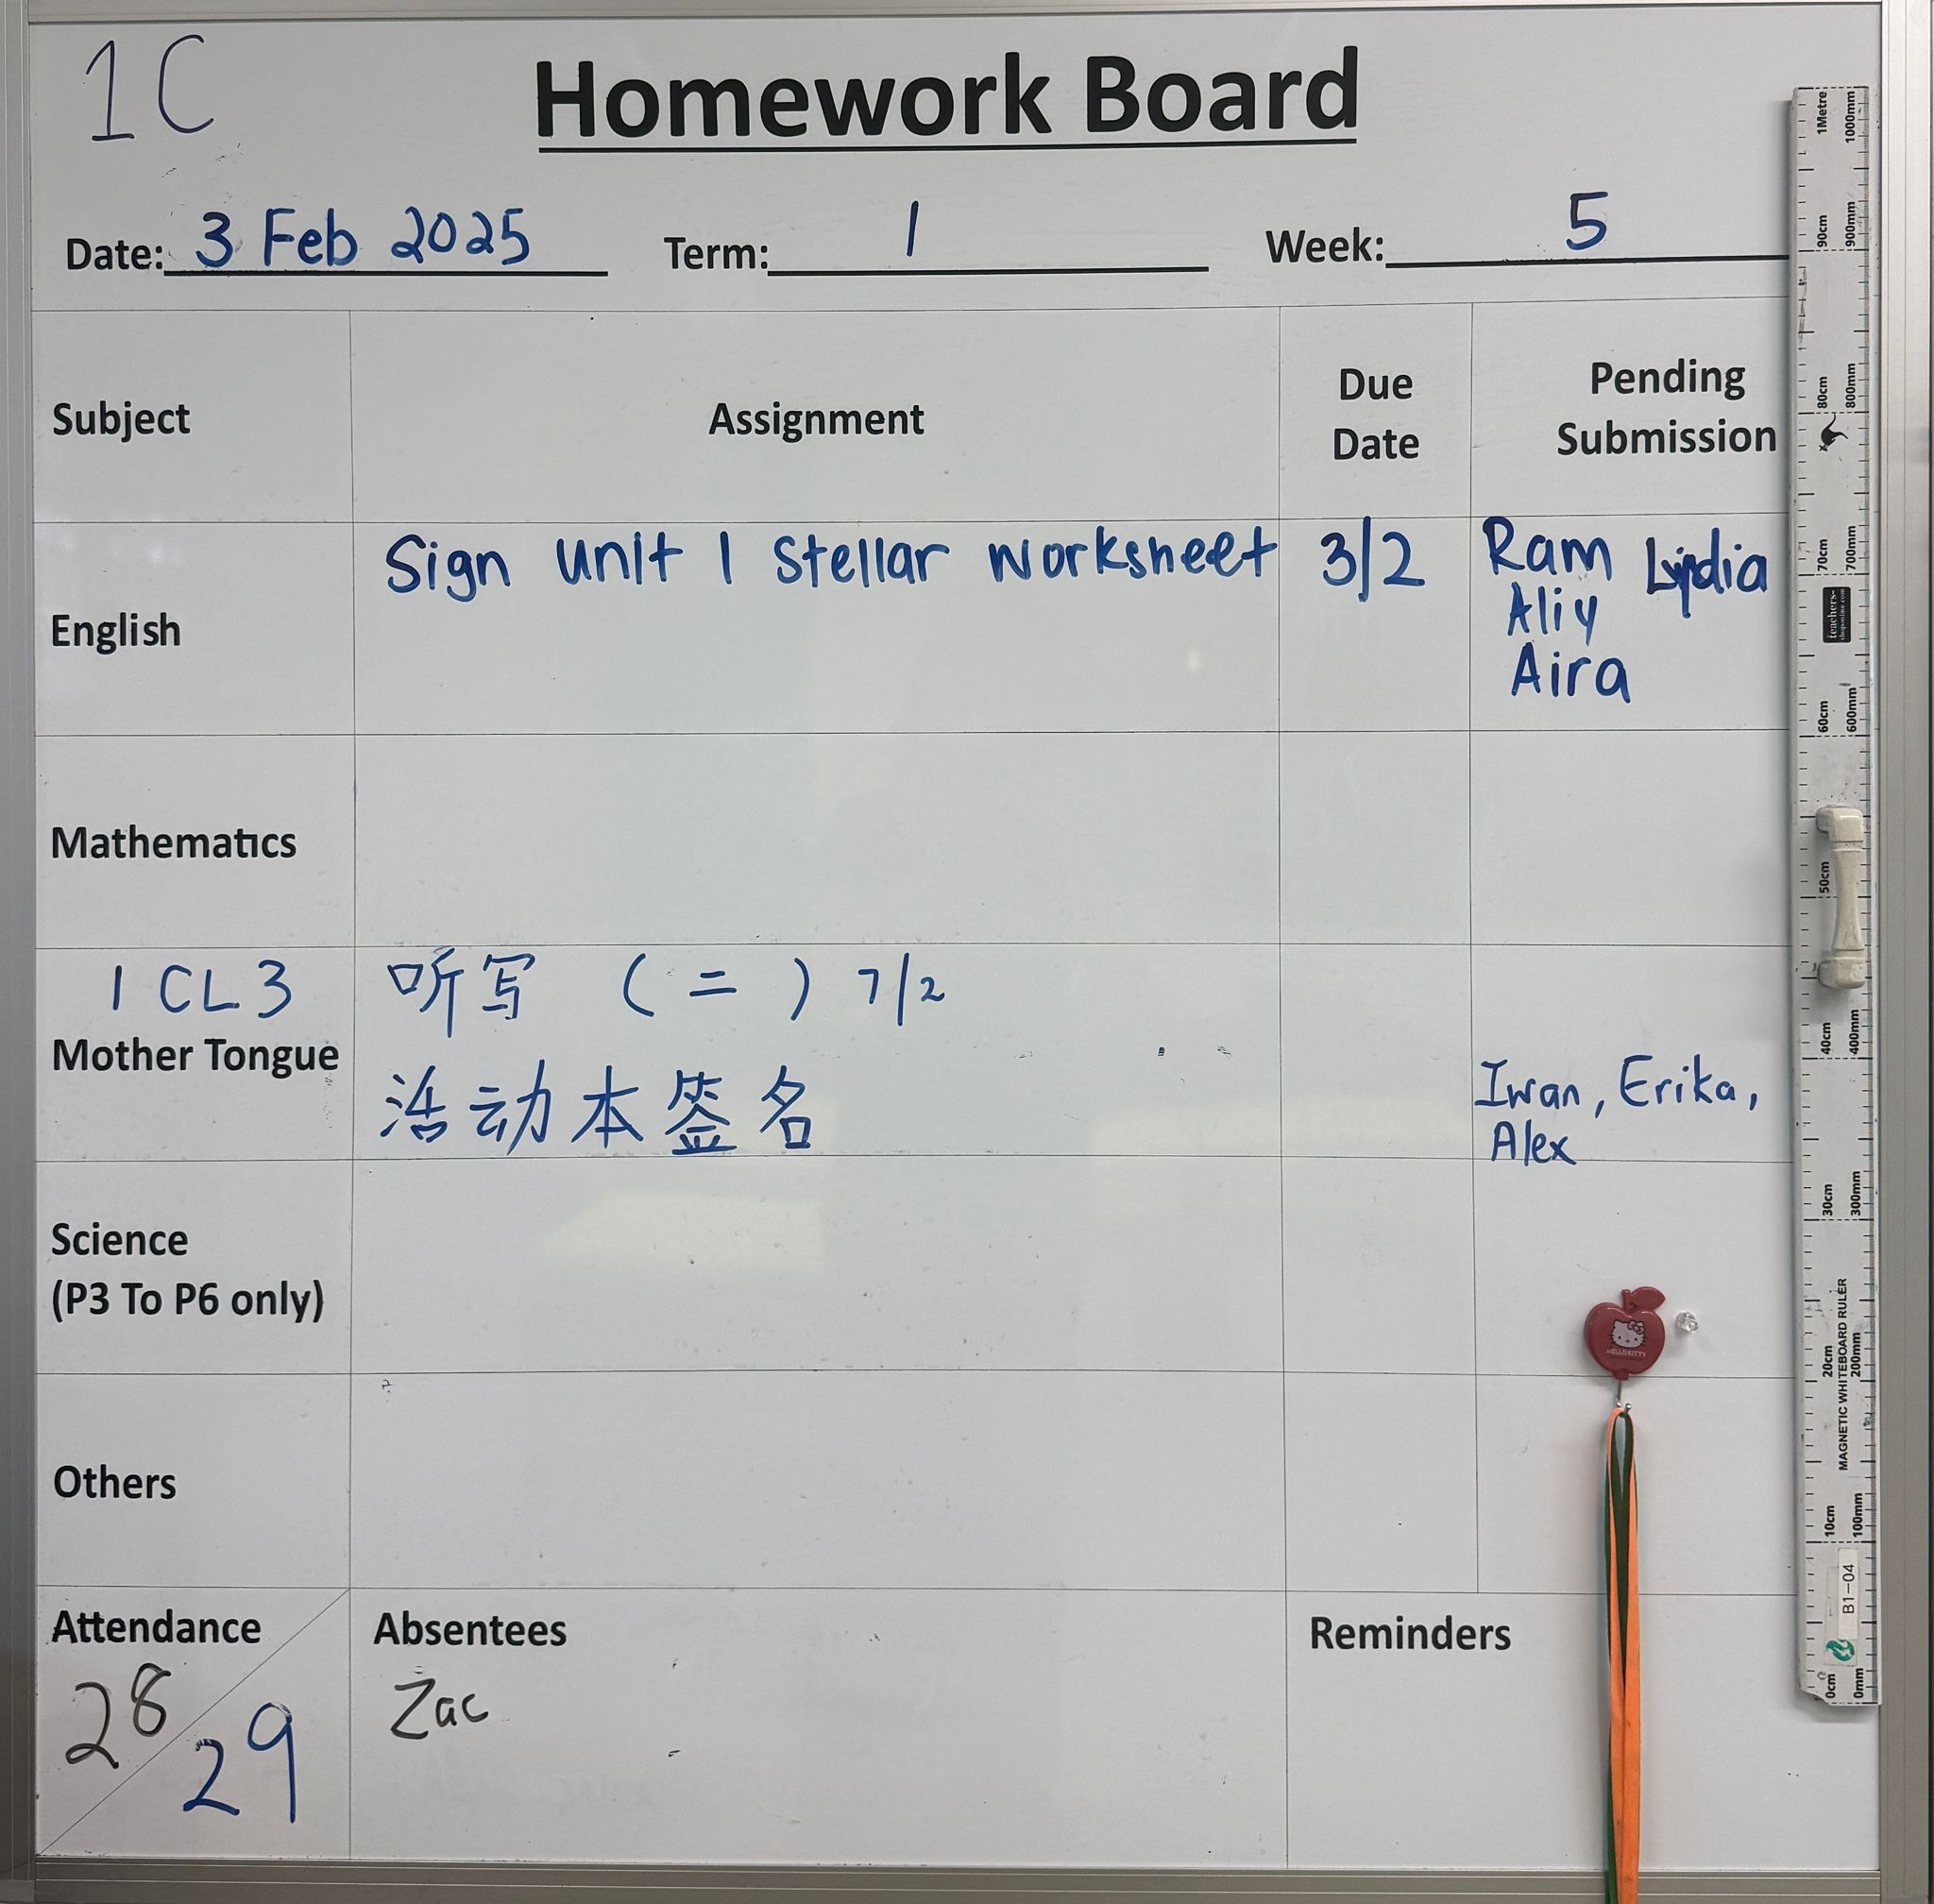 1C
Homework Board
Date: 3 Feb 2025 Term: 1 Week: 5
Subject Assignment Due Date Pending Submission
English Sign Unit 1 Stellar Worksheet 3/2 Ram Lydia
Aliy
Aira
Mathematics
1 CL3 听写 (二) 7/2
Mother Tongue
活动本签名 Iwan, Erika,
Alex
Science
(P3 To P6 only)
Others
Attendance Absentees Reminders
28 Zac
29
HELLO KITTY
1Metre 1000mm
90cm 900mm
80cm 800mm
70cm 700mm
teachers-
60cm 600mm
50cm
40cm 400mm
30cm 300mm
20cm 200mm
MAGNETIC WHITEBOARD RULER
10cm 100mm
B1-04
0cm 0mm